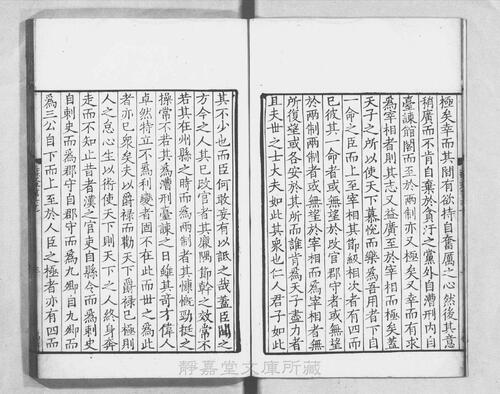 極矣幸而其間有欲持自奮厲之心然後其意
稍廣而不肯自棄於貪汙之黨外自漕刑内自
臺諫館閣而至於兩制亦又極矣又幸而有求
爲宰相者則其志又益廣至於宰相而極矣蓋
天子之所以使天下慕悅而樂爲吾用者下自
一命之臣而上至宰相其節級相次者有四而
已彼其一命者或無望於改官郡守者或無望
於兩制兩制者或無望於宰相而爲宰相者無
所復望或各安於其所而誰肯爲天子盡力者
且夫世之士大夫如此其衆也仁人君子如此
其不少也而臣何敢妄有以詆之哉蓋臣聞之
方今之人其已改官者其廉隅節幹之效常不
若其在州縣之時而爲兩制者其慷慨勁挺之
操常不若其爲漕刑臺諫之日維其奇才偉人
卓然特立不爲利變者固不在此而世之爲此
者亦已衆矣夫以爵祿而勸天下爵祿已極則
人之怠心生以術使天下則天下之人終身奔
走而不知止昔者漢之官吏自縣令而爲刺史
自刺史而爲郡守自郡守而爲九卿自九卿而
爲三公自下而上至於人臣之極者亦有四而
靜嘉堂文庫所藏